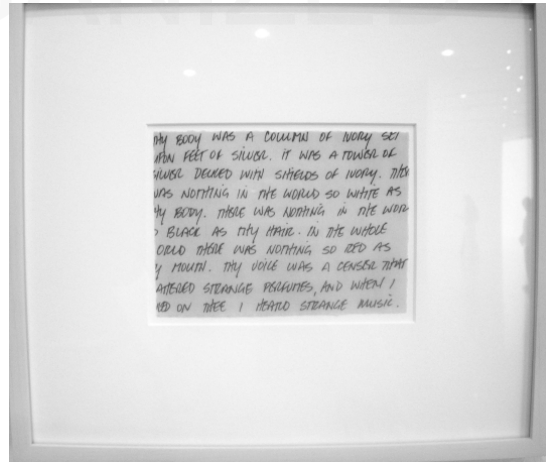 THY BODY WAS A COLUMN OF IVORY SET
UPON FEET OF SILVER. IT WAS A TOWER OF
SILVER DECKED WITH SHIELDS OF IVORY. THERE
WAS NOTHING IN THE WORLD SO WHITE AS
THY BODY. THERE WAS NOTHING IN THE WORLD
BLACK AS THY HAIR. IN THE WHOLE
WORLD THERE WAS NOTHING SO RED AS
THY MOUTH. THY VOICE WAS A CENSER THAT
SCATTERED STRANGE PERFUMES, AND WHEN I
ON THEE I HEARD STRANGE MUSIC.